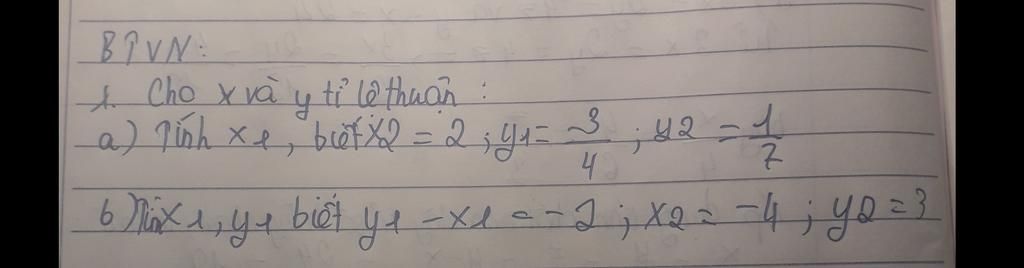 BTVN:
1. Cho x và y tỉ lệ thuận:
a) Tính x1, biết x2 = 2; y1 = -3/4; y2 = 1/7
b) Tìm x1, y1 biết y1 - x1 = -2; x2 = -4; y2 = 3